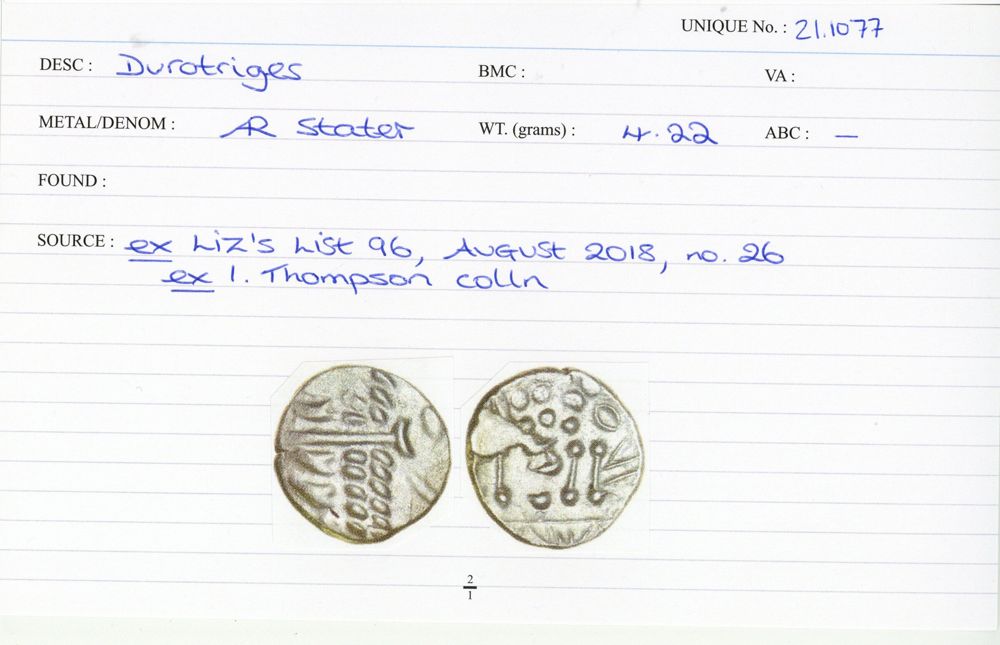 UNIQUE No. : 21.1077
DESC : Durotriges BMC : VA :
METAL/DENOM : AR Stater WT. (grams) : 4.22 ABC : —
FOUND :
SOURCE : ex Liz's List 96, August 2018, no. 26
ex I. Thompson colln
2
1